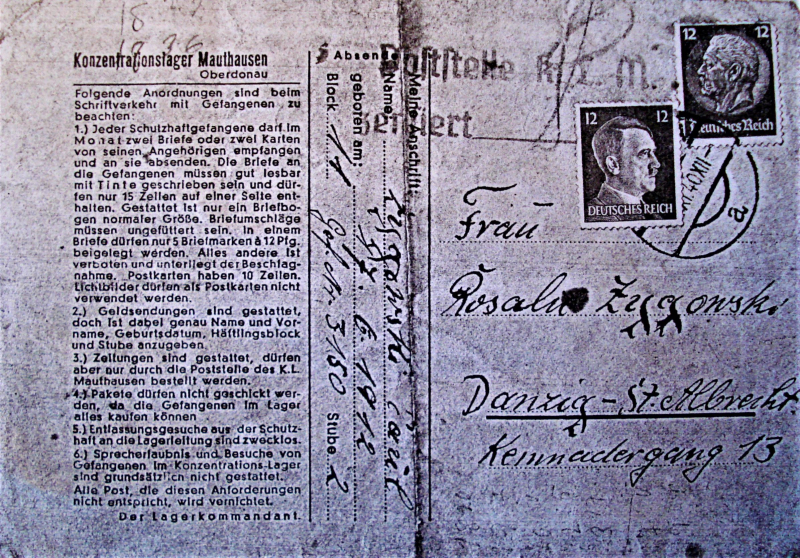 Konzentrationslager Mauthausen
Oberdonau
Folgende Anordnungen sind beim
Schriftverkehr mit Gefangenen zu
beachten:
1.) Jeder Schutzhaftgefangene darf im
Monat zwei Briefe oder zwei Karten
von seinen Angehörigen empfangen
und an sie absenden. Die Briefe an
die Gefangenen müssen gut lesbar
mit Tinte geschrieben sein und dür-
fen nur 15 Zeilen auf einer Seite ent-
halten. Gestattet ist nur ein Briefbo-
gen normaler Größe. Briefumschläge
müssen ungefüttert sein. In einem
Briefe dürfen nur 5 Briefmarken à 12 Pfg.
beigelegt werden. Alles andere ist
verboten und unterliegt der Beschlag-
nahme. Postkarten haben 10 Zeilen.
Lichtbilder dürfen als Postkarten nicht
verwendet werden.
2.) Geldsendungen sind gestattet,
doch ist dabei genau Name und Vor-
name, Geburtsdatum, Häftlingsblock
und Stube anzugeben.
3.) Zeitungen sind gestattet, dürfen
aber nur durch die Poststelle des K.L.
Mauthausen bestellt werden.
4.) Pakete dürfen nicht geschickt wer-
den, da die Gefangenen im Lager
alles kaufen können
5.) Entlassungsgesuche aus der Schutz-
haft an die Lagerleitung sind zwecklos.
6.) Sprecherlaubnis und Besuche von
Gefangenen im Konzentrations-Lager
sind grundsätzlich nicht gestattet.
Alle Post, die diesen Anforderungen
nicht entspricht, wird vernichtet.
Der Lagerkommandant.
Absende
Meine Anschrift:
Name:
geboren am: 6. 1912
Block 11 3150 Stube 2
Poststelle K. L. M.
12 12
Deutsches Reich
12 12
DEUTSCHES REICH
a
Frau
Rosalie Zygowski
Danzig-St. Albrecht
Kemnadergang 13